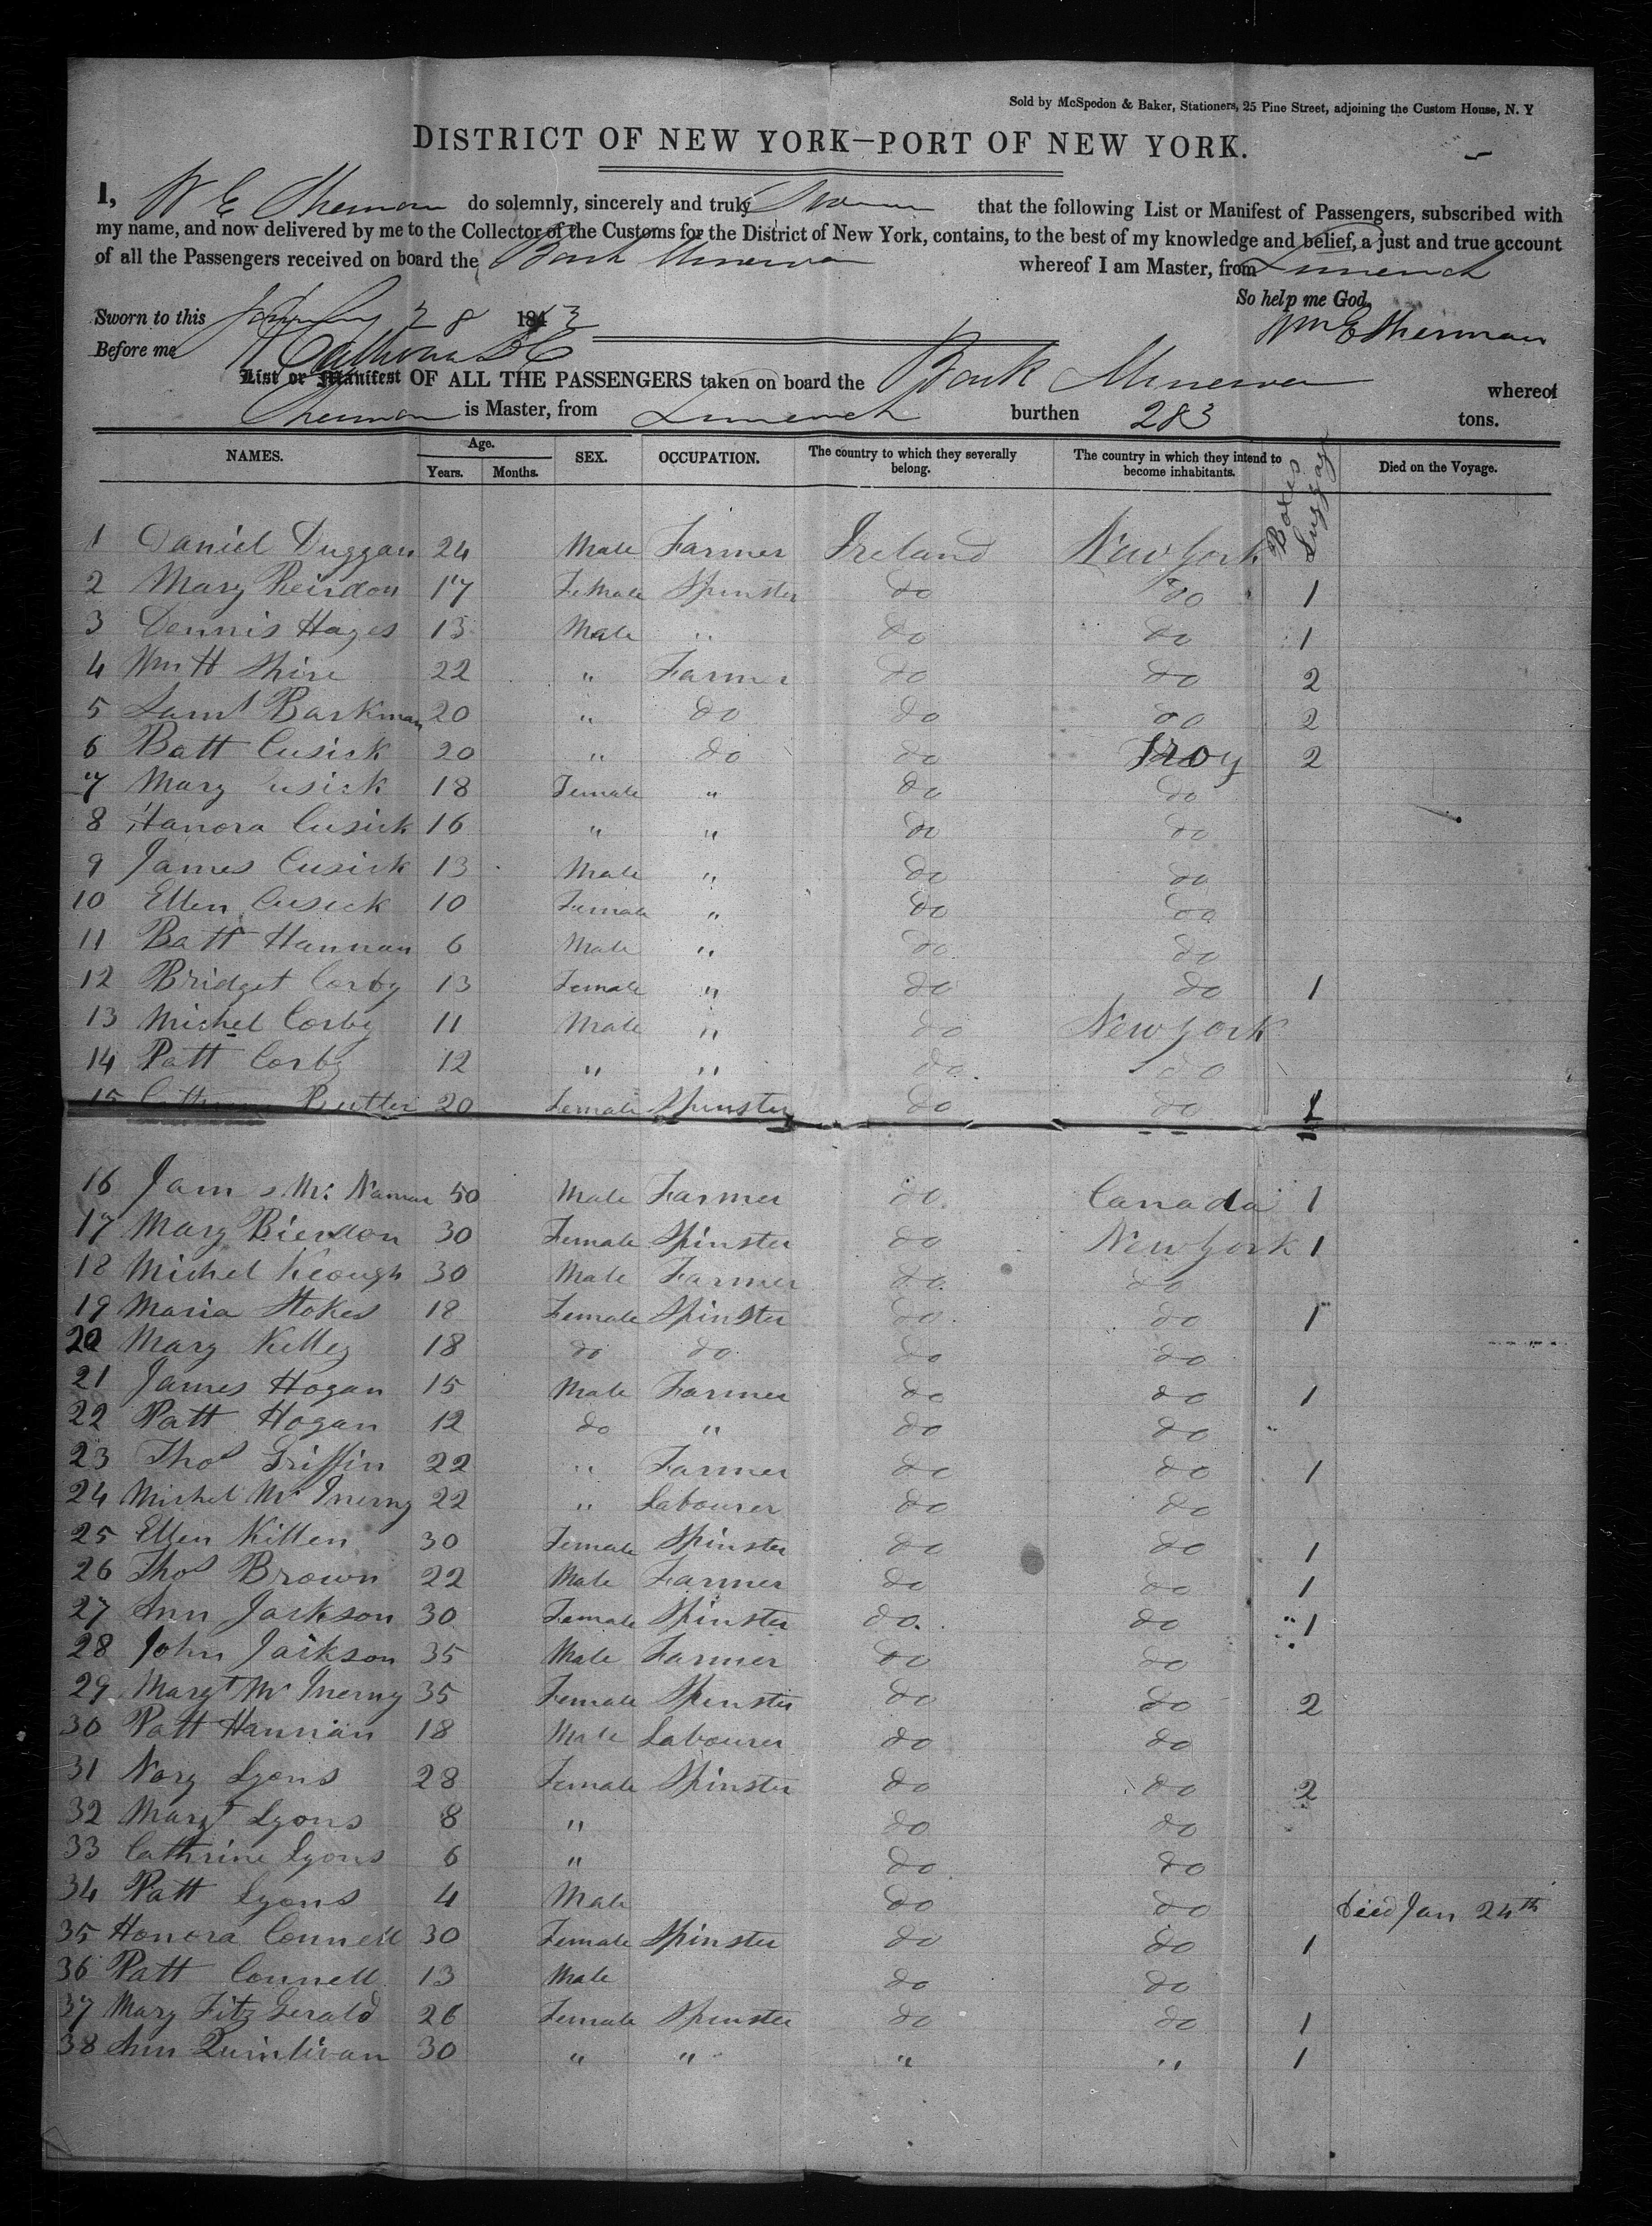 Sold by McSpedon & Baker, Stationers, 25 Pine Street, adjoining the Custom House, N. Y
DISTRICT OF NEW YORK—PORT OF NEW YORK.
I, W E Sherman do solemnly, sincerely and truly Swear that the following List or Manifest of Passengers, subscribed with
my name, and now delivered by me to the Collector of the Customs for the District of New York, contains, to the best of my knowledge and belief, a just and true account
of all the Passengers received on board the Bark Minerva whereof I am Master, from Limerick
So help me God,
Sworn to this 28 184 Wm E Sherman
Before me
List or Manifest OF ALL THE PASSENGERS taken on board the Bark Minerva whereof
Sherman is Master, from Limerick burthen 283 tons.
NAMES. Age. Years. Months. SEX. OCCUPATION. The country to which they severally belong. The country in which they intend to become inhabitants. Boxes Luggage Died on the Voyage.
1 Daniel Duggan 24 Male Farmer Ireland New York
2 Mary Reirdon 17 Female Spinster do do 1
3 Dennis Hayes 13 Male " do do 1
4 Wm H Shire 22 " Farmer do do 2
5 Saml Barkman 20 " do do do 2
6 Batt Cusick 20 " do do Troy 2
7 Mary Cusick 18 Female " do do
8 Hanora Cusick 16 " " do do
9 James Cusick 13 Male " do do
10 Ellen Cusick 10 Female " do do
11 Batt Hannan 6 Male " do do
12 Bridget Corby 13 Female " do do 1
13 Michel Corby 11 Male " do New York
14 Patt Corby 12 " " do do
15 Butler 20 Female Spinster do do 1
16 James Mc Namar 50 Male Farmer do Canada 1
17 Mary Rierdon 30 Female Spinster do New York 1
18 Michel Keough 30 Male Farmer do do
19 Maria Stokes 18 Female Spinster do do 1
20 Mary Kelley 18 do do do do
21 James Hogan 15 Male Farmer do do 1
22 Patt Hogan 12 do " do do
23 Thos Griffin 22 " Farmer do do 1
24 Michel Mc Inerny 22 " Labourer do do
25 Ellen Killen 30 Female Spinster do do 1
26 Thos Brown 22 Male Farmer do do 1
27 Ann Jackson 30 Female Spinster do. do 1
28 John Jackson 35 Male Farmer do do
29 Margt Mc Inerny 35 Female Spinster do do 2
30 Patt Hannan 18 Male Labourer do do
31 Nory Lyons 28 Female Spinster do do 2
32 Margt Lyons 8 " do do
33 Cathrine Lyons 6 " do do
34 Patt Lyons 4 Male do do Died Jan 24th
35 Honora Connell 30 Female Spinster do do 1
36 Patt Connell 13 Male do do
37 Mary Fitz Gerald 26 Female Spinster do do 1
38 Ann Quinlivan 30 " " " " 1